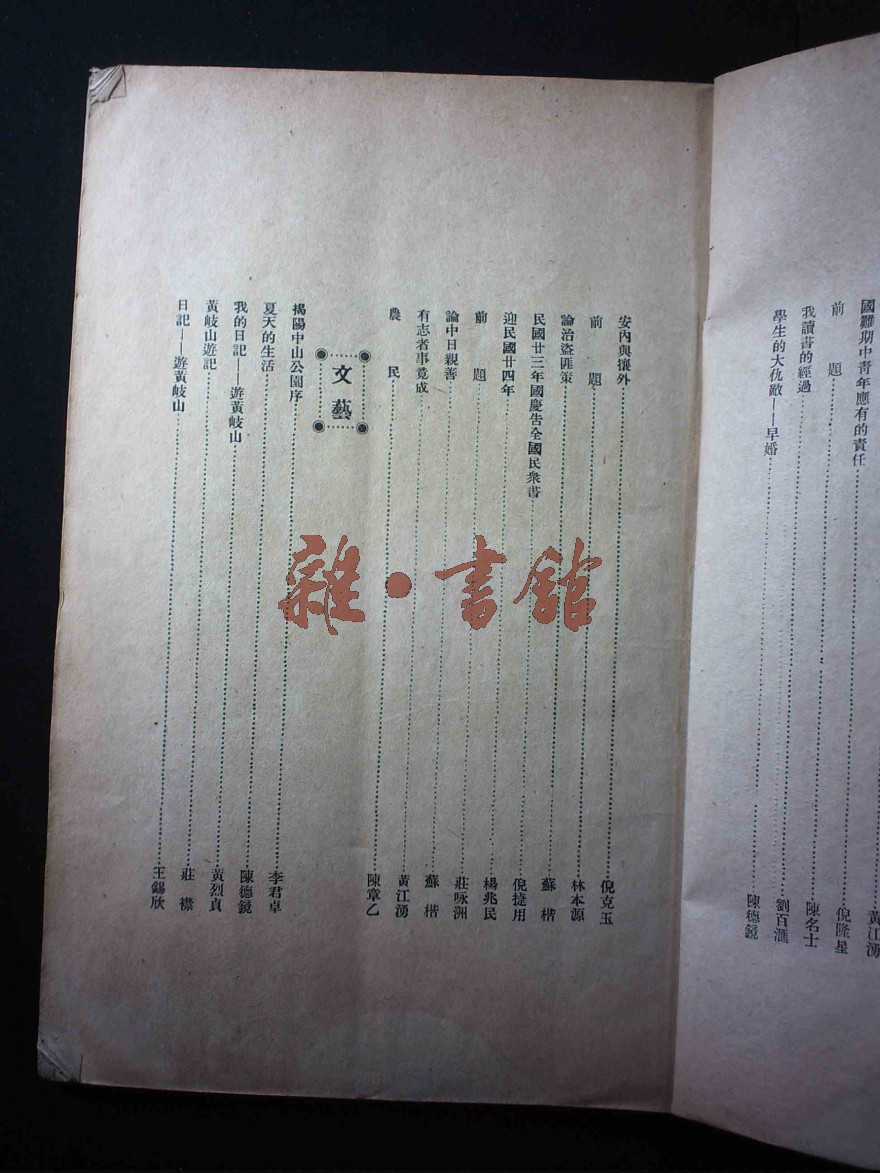 國難期中青年應有的責任……黃江湧
前題……倪隆星
我讀書的經過……陳名士
學生的大仇敵——早婚……劉百滙
陳德鏡
安內與攘外……倪克玉
前題……林本源
論治盜匪策……蘇楷
民國廿三年國慶告全國民衆書……倪捷用
迎民國廿四年……楊兆民
前題……莊咏洲
論中日親善……蘇楷
有志者事竟成……黃江湧
農民……陳章乙
文藝
揭陽中山公園序……李君卓
夏天的生活……陳德鏡
我的日記——遊黃岐山……黃烈貞
黃岐山遊記……莊襟
日記——遊黃岐山……王錫欣
雜·書館